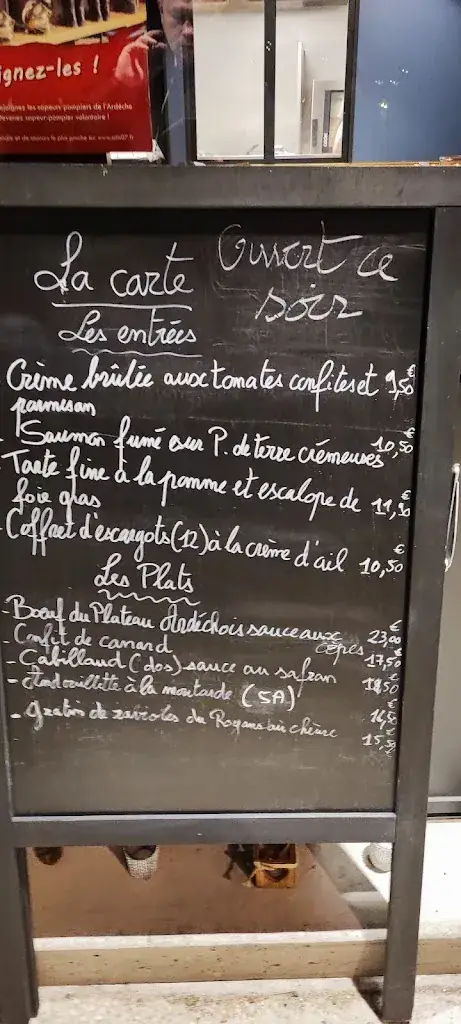 ignez-les !
ejoignez les sapeurs-pompiers de l'Ardèche
Devenez sapeur-pompier volontaire !
La carte
Ouvert ce
soir
Les entrées
Crème brûlée aux tomates confites et 9,50€
parmesan
- Saumon fumé sur P. de terre crémeuses 10,50€
- Tarte fine à la pomme et escalope de 11,50€
foie gras
- Coffret d'escargots (12) à la crème d'ail 10,50€
Les Plats
- Boeuf du Plateau Ardéchois sauce aux 23,00€
cèpes
- Confit de canard 17,50€
- Cabillaud (dos) sauce au safran 18,50€
- Andouillette à la moutarde (5A) 16,50€
- Gratin de ravioles du Royans au chèvre 15,50€